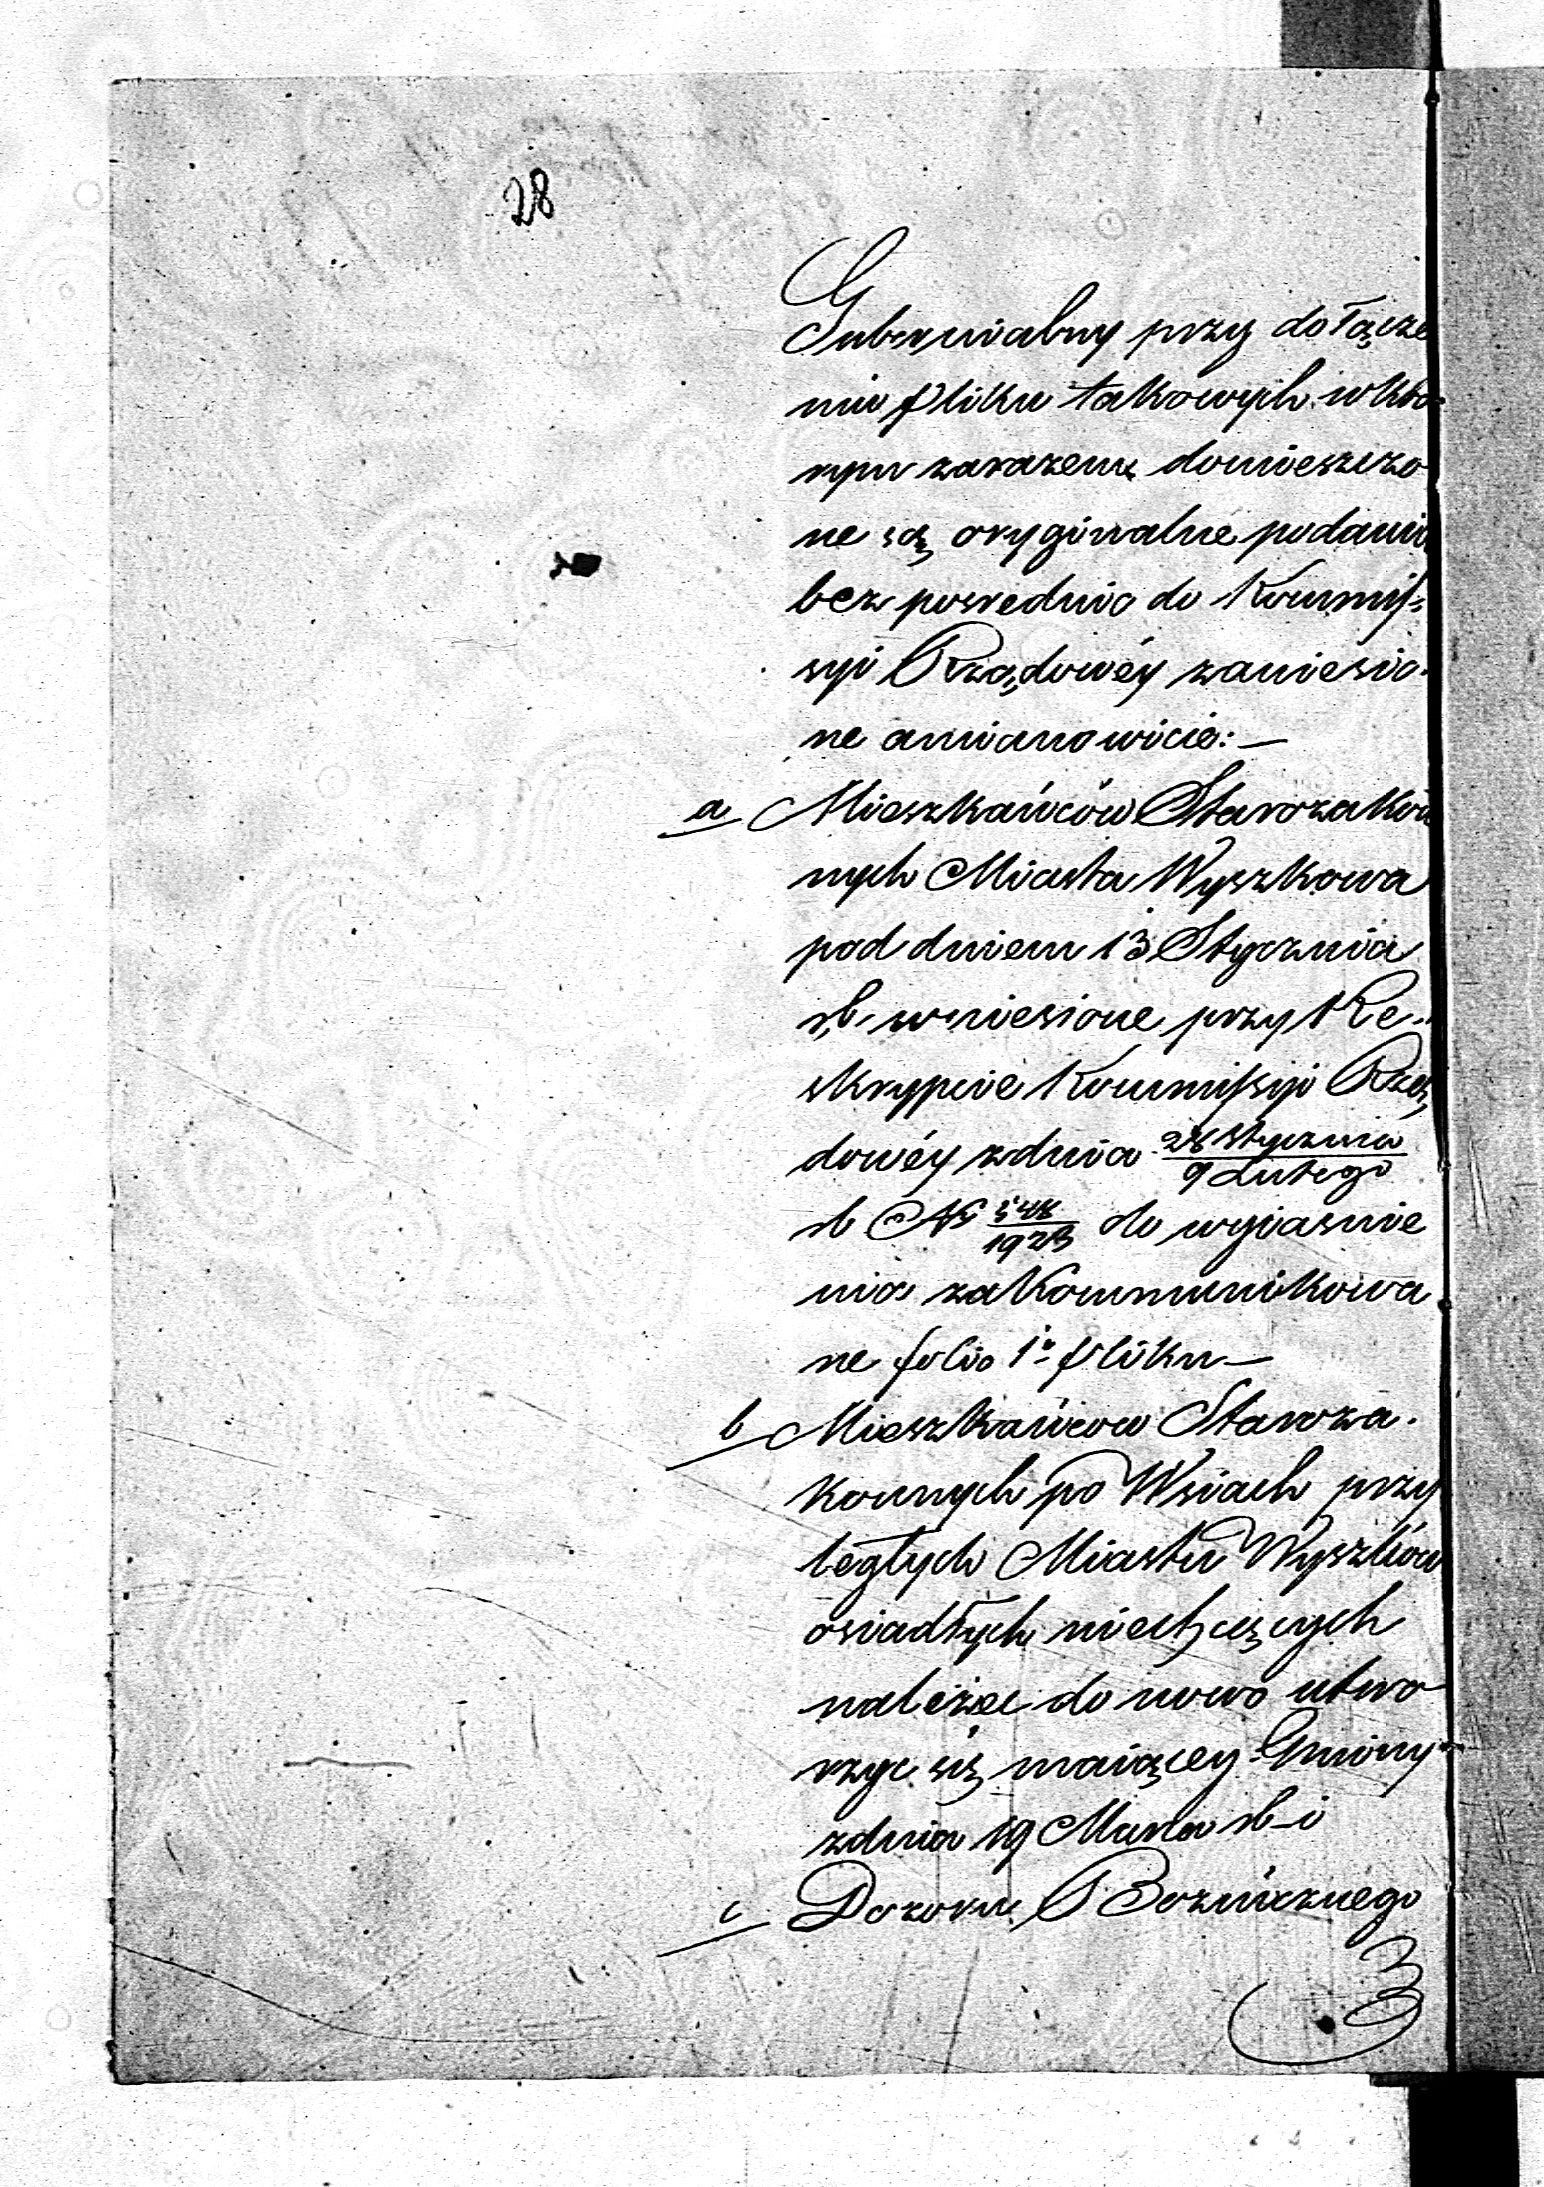 28
Gubernialny przy dołącze
niu pliku takowych w któ-
rym zarazem domieszczo
ne są oryginalne podania
bez posrednio do Kommis-
syi Rządowéy zaniesio-
ne a mianowicie: —
a Mieszkańców Starozakon
nych Miasta Wyszkowa
pod dniem 13 Stycznia
rb. wniesione przy Re-
skrypcie Kommissyi Rzą
dowéy z dnia 28 Stycznia / 9 Lutego
rb No 548/1923 do wyiasnie
nia zakommunikowa
ne folio 1o pliku —
b Mieszkańców Staroza-
konnych po Wsiach przy
ległych Miastu Wyszków
osiadłych niechcących
należeć do nowo utwo
rzyć się maiącey Gminy
z dnia 19 Marca rb i
c Dozoru Bożnicznego